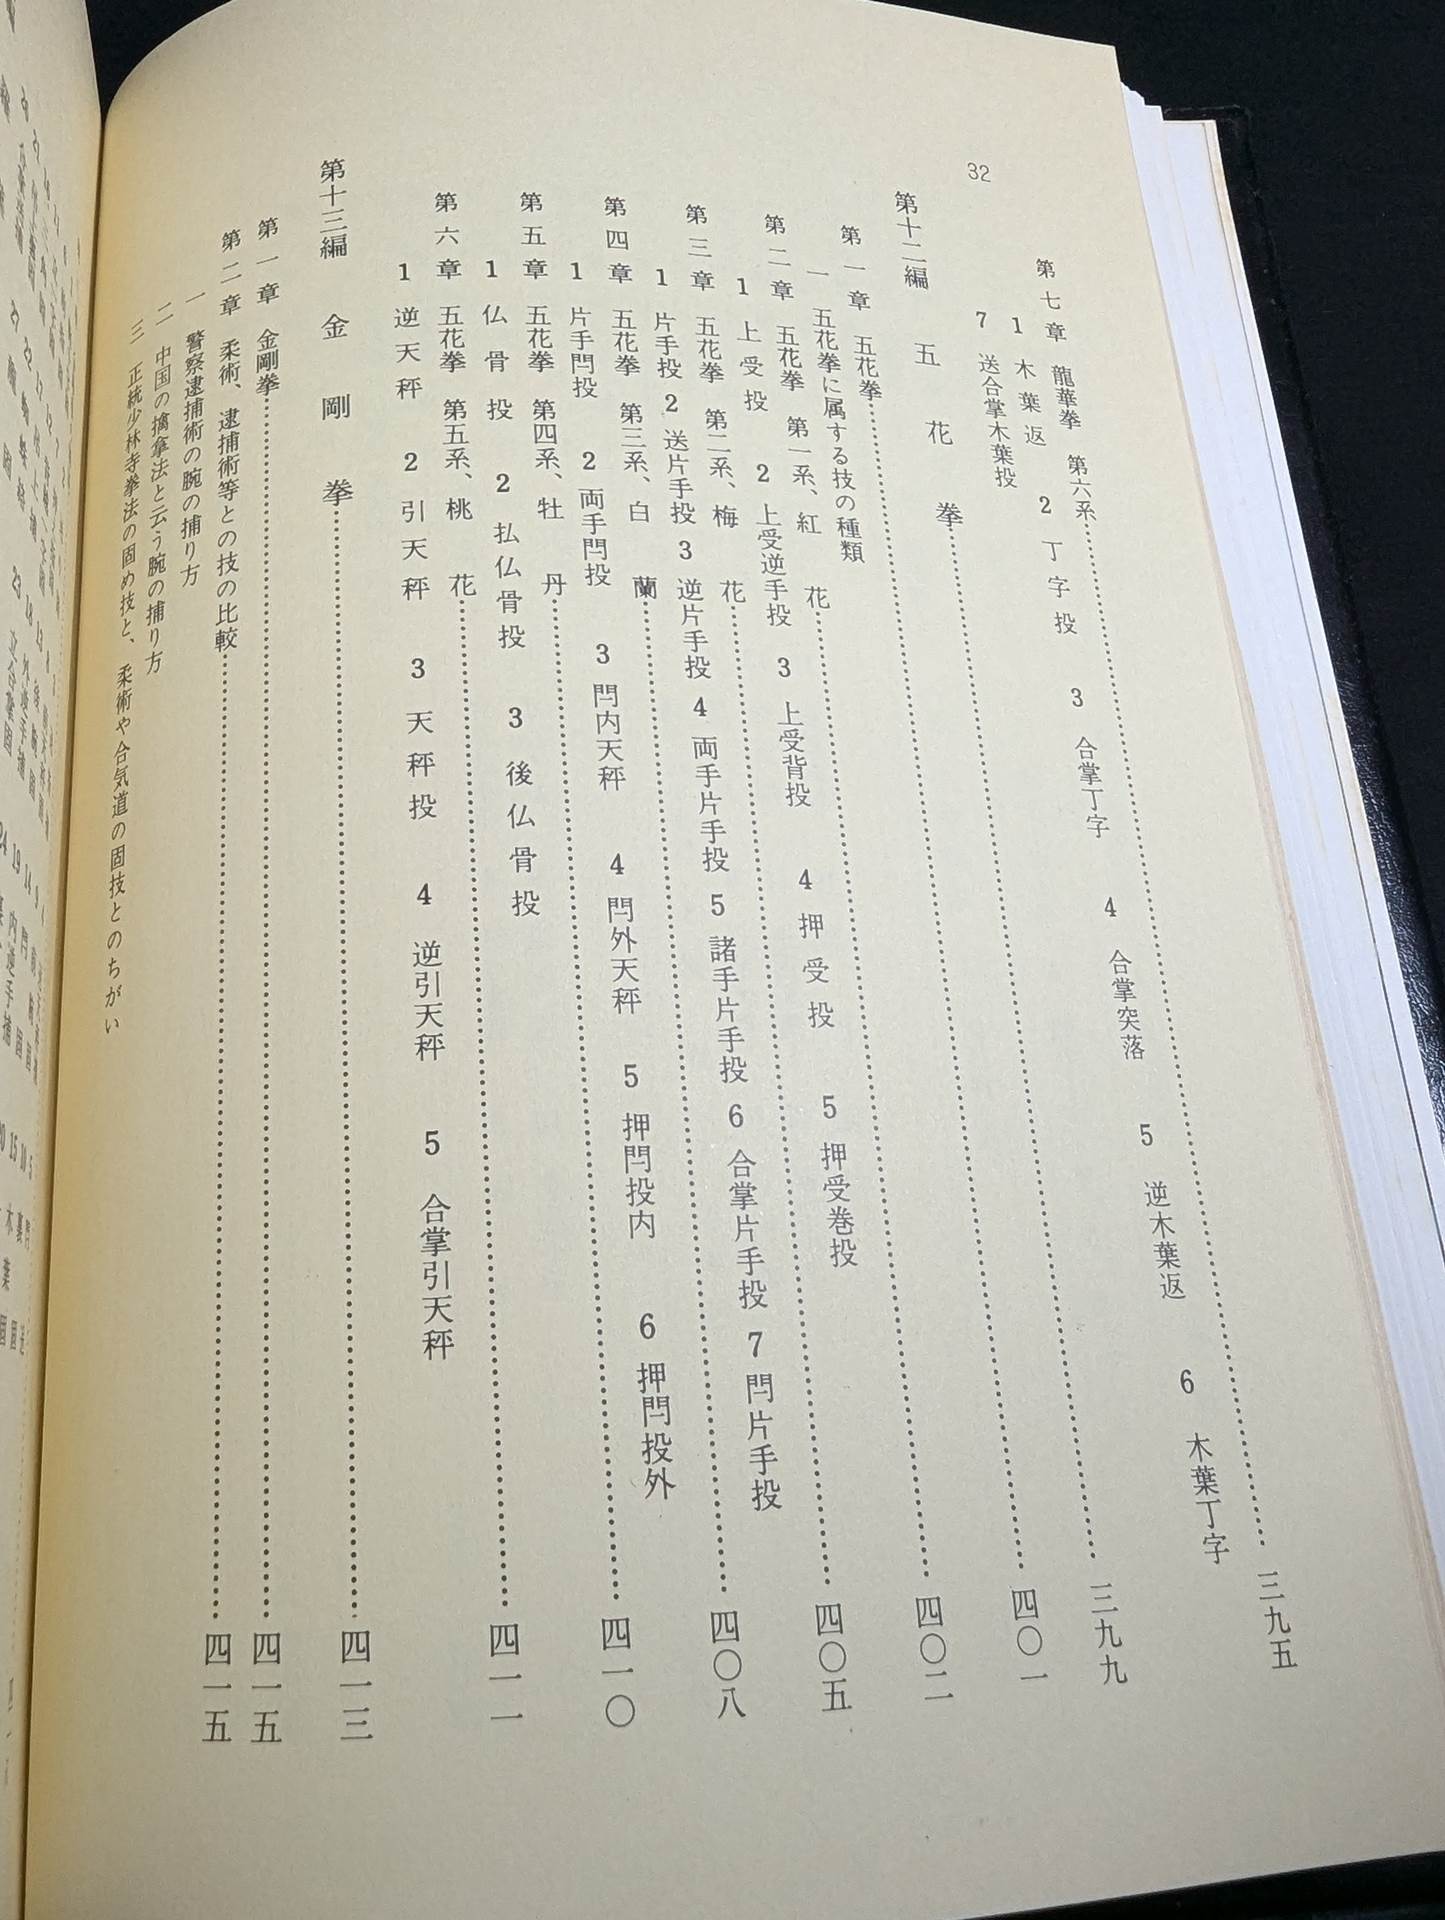 32
第七章 龍華拳 第六系……三九五
1 木葉返 2 丁字投 3 合掌丁字 4 合掌突落 5 逆木葉返 6 木葉丁字
7 送合掌木葉投
第十二編 五花拳……三九九
第一章 五花拳……四〇一
一 五花拳に属する技の種類
第二章 五花拳 第一系、紅花……四〇二
1 上受投 2 上受逆手投 3 上受背投 4 押受投 5 押受巻投
第三章 五花拳 第二系、梅花……四〇五
1 片手投 2 送片手投 3 逆片手投 4 両手片手投 5 諸手片手投 6 合掌片手投 7 閂片手投
第四章 五花拳 第三系、白蘭……四〇八
1 片手閂投 2 両手閂投 3 閂内天秤 4 閂外天秤 5 押閂投内 6 押閂投外
第五章 五花拳 第四系、牡丹……四一〇
1 仏骨投 2 払仏骨投 3 後仏骨投
第六章 五花拳 第五系、桃花……四一一
1 逆天秤 2 引天秤 3 天秤投 4 逆引天秤 5 合掌引天秤
第十三編 金剛拳……四一三
第一章 金剛拳……四一五
第二章 柔術、逮捕術等との技の比較……四一五
一 警察逮捕術の腕の捕り方
二 中国の擒拿法と云う腕の捕り方
三 正統少林寺拳法の固め技と、柔術や合気道の固技とのちがい